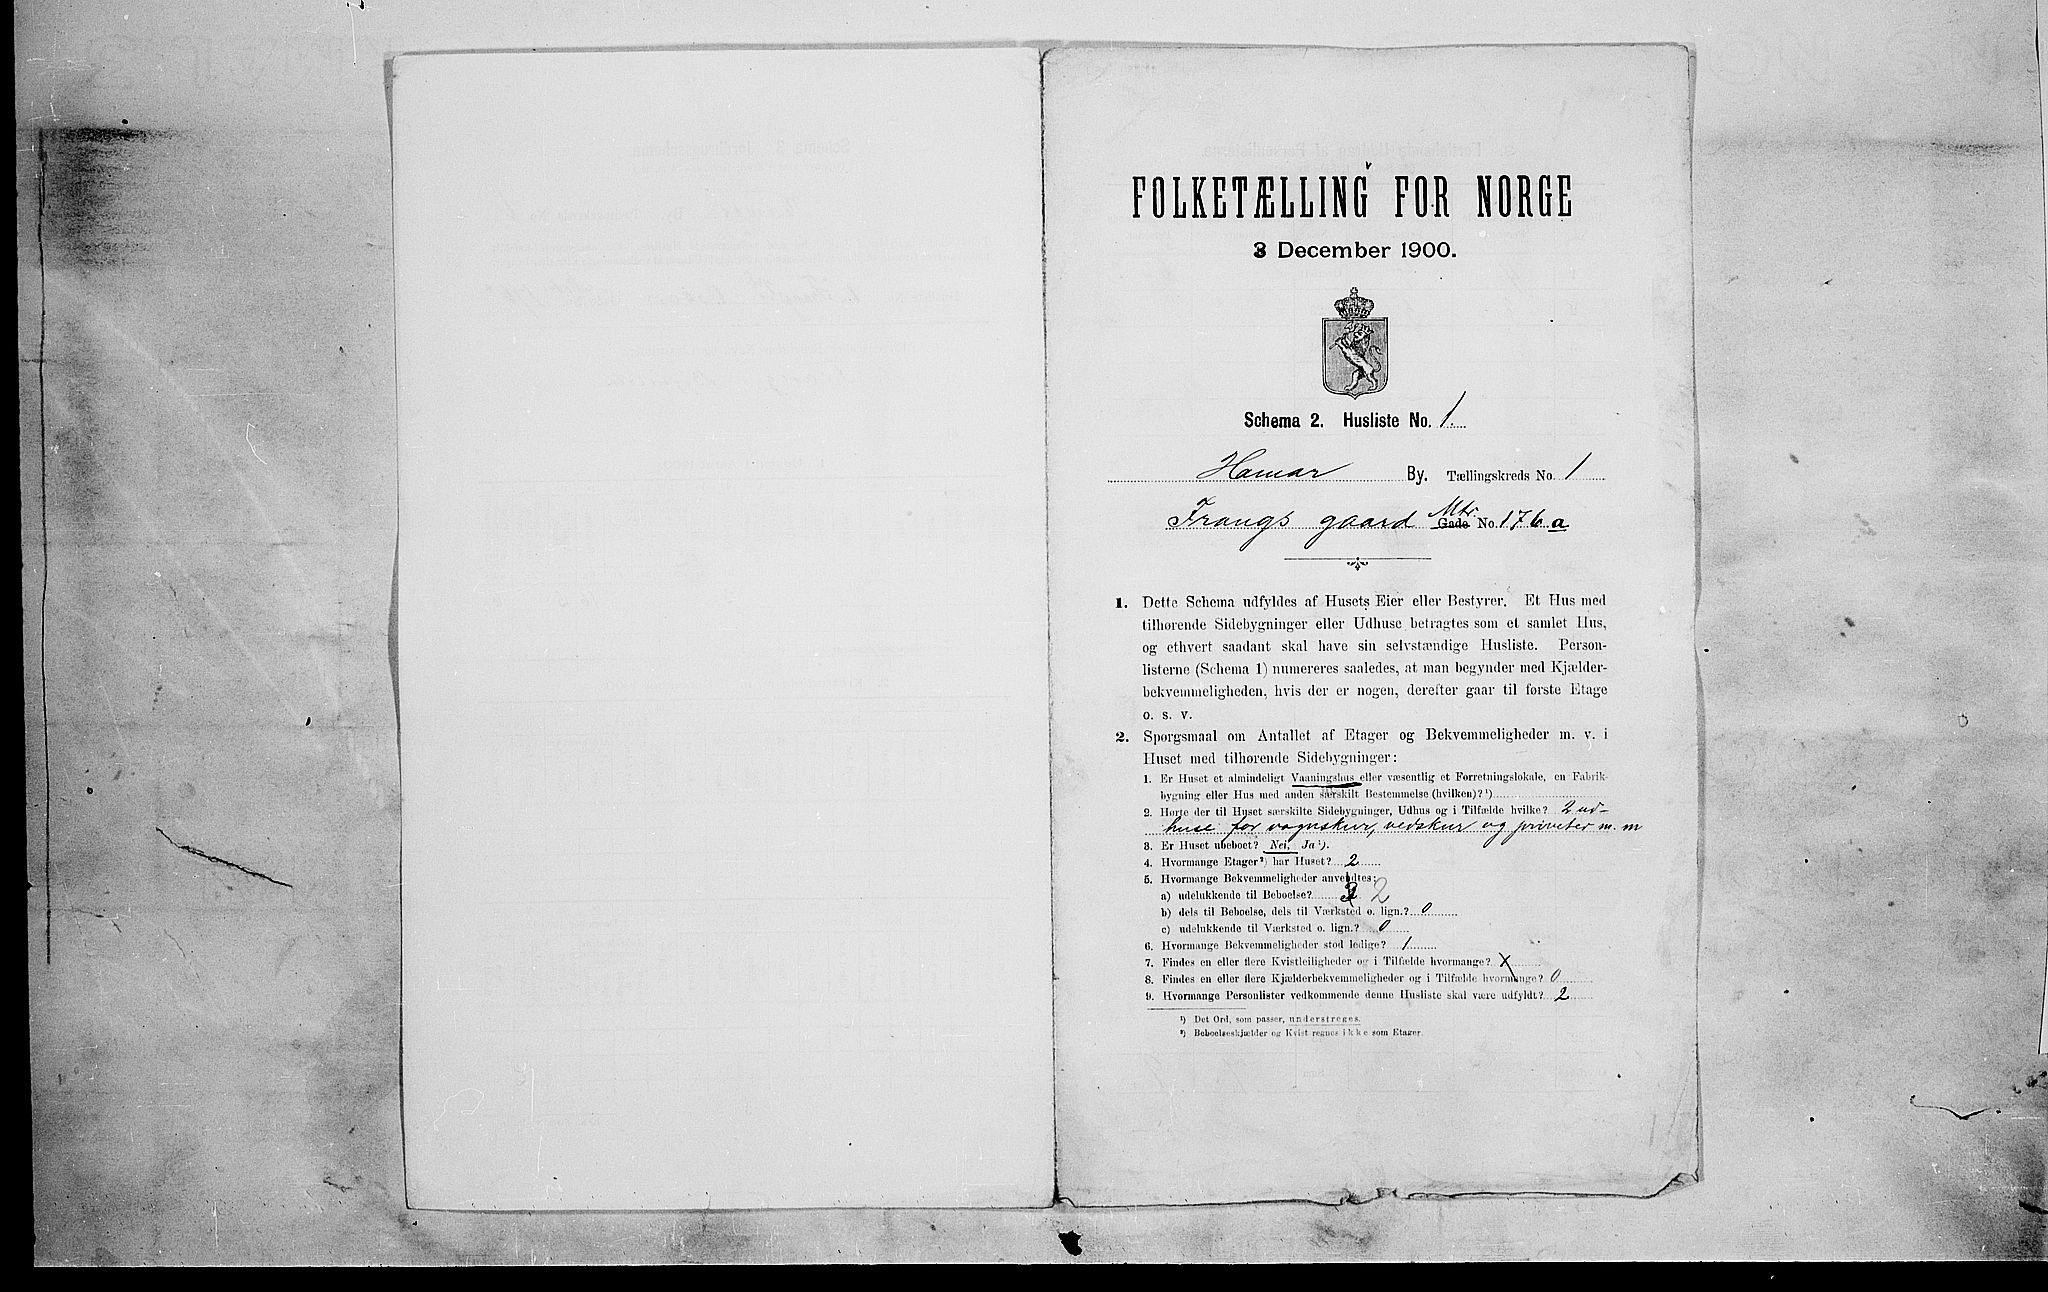 FOLKETÆLLING FOR NORGE
3 December 1900.
Schema 2. Husliste No. 1.
Hamar By. Tællingskreds No. 1
Frangs gaard Mtr. Gade No. 176 a
1. Dette Schema udfyldes af Husets Eier eller Bestyrer. Et Hus med
tilhørende Sidebygninger eller Udhuse betragtes som et samlet Hus,
og ethvert saadant skal have sin selvstændige Husliste. Person-
listerne (Schema 1) numereres saaledes, at man begynder med Kjælder-
bekvemmeligheden, hvis der er nogen, derefter gaar til første Etage
o. s. v.
2. Spørgsmaal om Antallet af Etager og Bekvemmeligheder m. v. i
Huset med tilhørende Sidebygninger:
1. Er Huset et almindeligt Vaaningshus eller væsentlig et Forretningslokale, en Fabrik-
bygning eller Hus med anden særskilt Bestemmelse (hvilken)? ¹)
2. Hørte der til Huset særskilte Sidebygninger, Udhus og i Tilfælde hvilke? 2 ud-
huse for vognskur, vedskur og priveter m. m
3. Er Huset ubeboet? Nei, Ja ¹).
4. Hvormange Etager ²) har Huset? 2
5. Hvormange Bekvemmeligheder anvendtes:
a) udelukkende til Beboelse? 2
b) dels til Beboelse, dels til Værksted o. lign.? 0
c) udelukkende til Værksted o. lign.? 0
6. Hvormange Bekvemmeligheder stod ledige? 1
7. Findes en eller flere Kvistleiligheder og i Tilfælde hvormange?
8. Findes en eller flere Kjælderbekvemmeligheder og i Tilfælde hvormange? 0
9. Hvormange Personlister vedkommende denne Husliste skal være udfyldt? 2
¹) Det Ord, som passer, understreges.
²) Beboelseskjælder og Kvist regnes ikke som Etager.